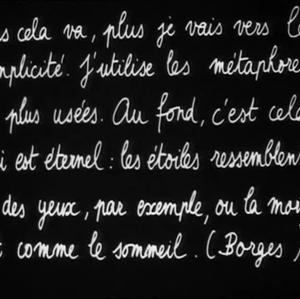 s cela va, plus je vais vers l
mplicité. J'utilise les métaphore
plus usées. Au fond, c'est cela
i est éternel : les étoiles ressemblen
des yeux, par exemple, ou la mor
comme le sommeil. (Borges